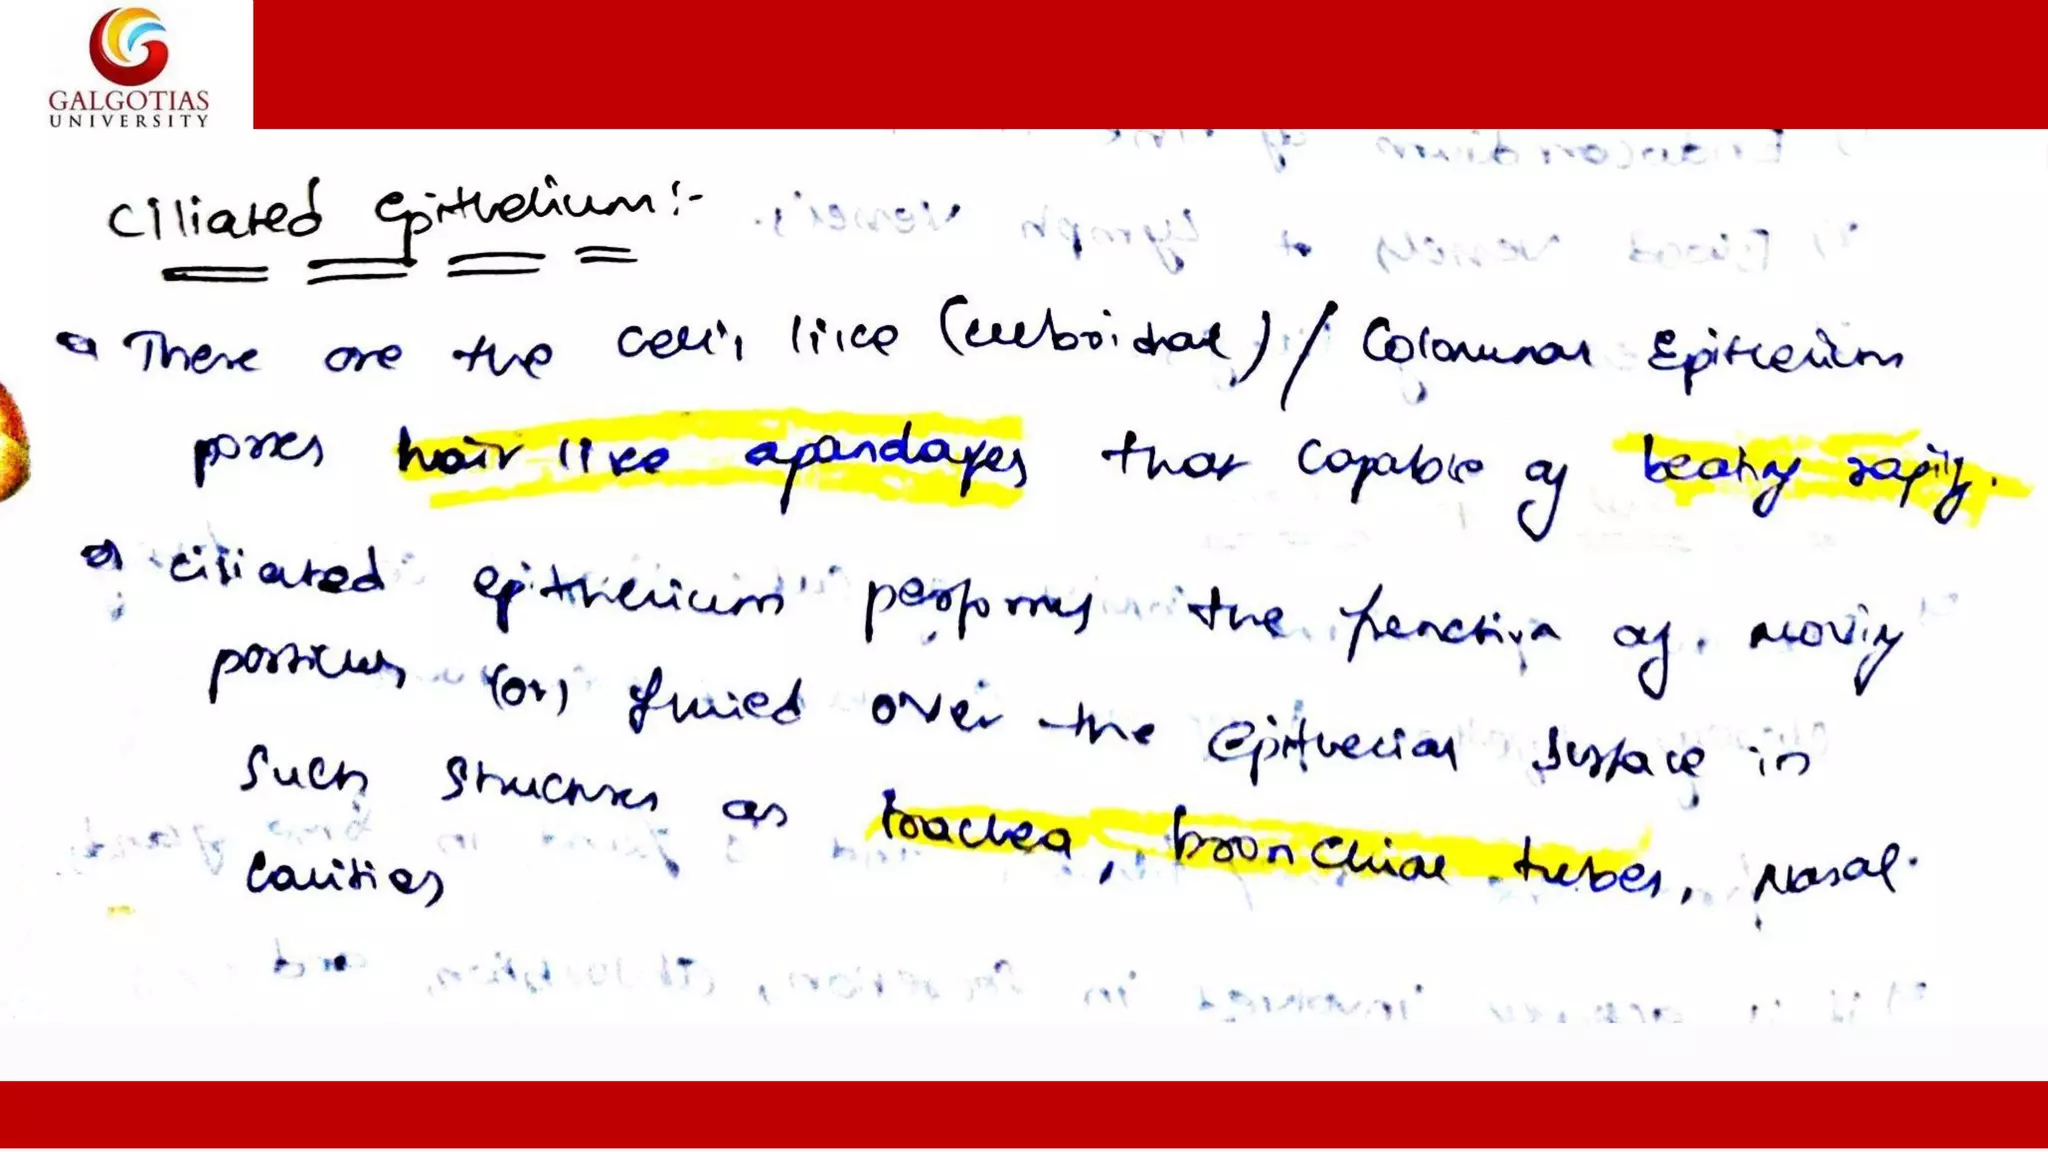 GALGOTIAS
UNIVERSITY
Ciliated epithelium:-
There are the cell's like (cuboidal) / Colomunar Epithelium
posses hair like apandages that capable of beating rapily.
Ciliated epithelium performs the function of moving
particles (or) fluied over the epithelial surface in
Such structures as trachea, bronchial tubes, Nasal
Cavities